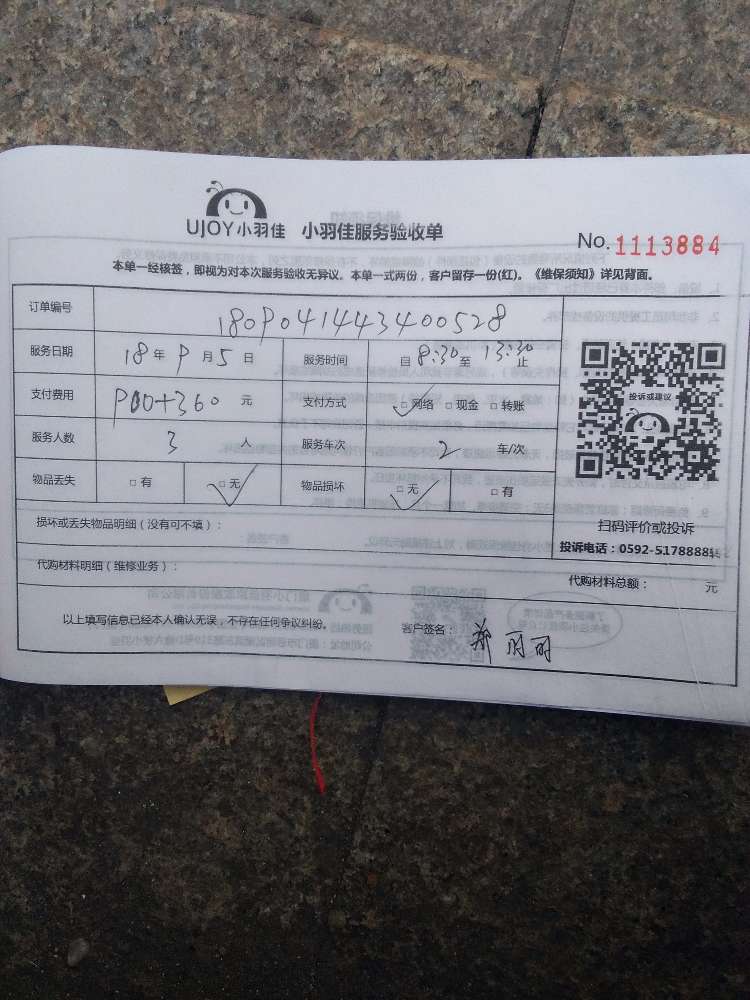 UJOY小羽佳 小羽佳服务验收单
No. 1113884
本单一经核签，即视为对本次服务验收无异议。本单一式两份，客户留存一份(红)。《维保须知》详见背面。
订单编号 1809041443400528
服务日期 18年9月5日 服务时间 自8:30至13:30止
支付费用 900+360元 支付方式 □网络 □现金 □转账
服务人数 3人 服务车次 2车/次
物品丢失 □有 □无 物品损坏 □无 □有
投诉或建议
扫码评价或投诉
损坏或丢失物品明细（没有可不填）：
投诉电话：0592-5178888转
代购材料明细（维修业务）： 代购材料总额： 元
以上填写信息已经本人确认无误，不存在任何争议纠纷。 客户签名：郑丽丽